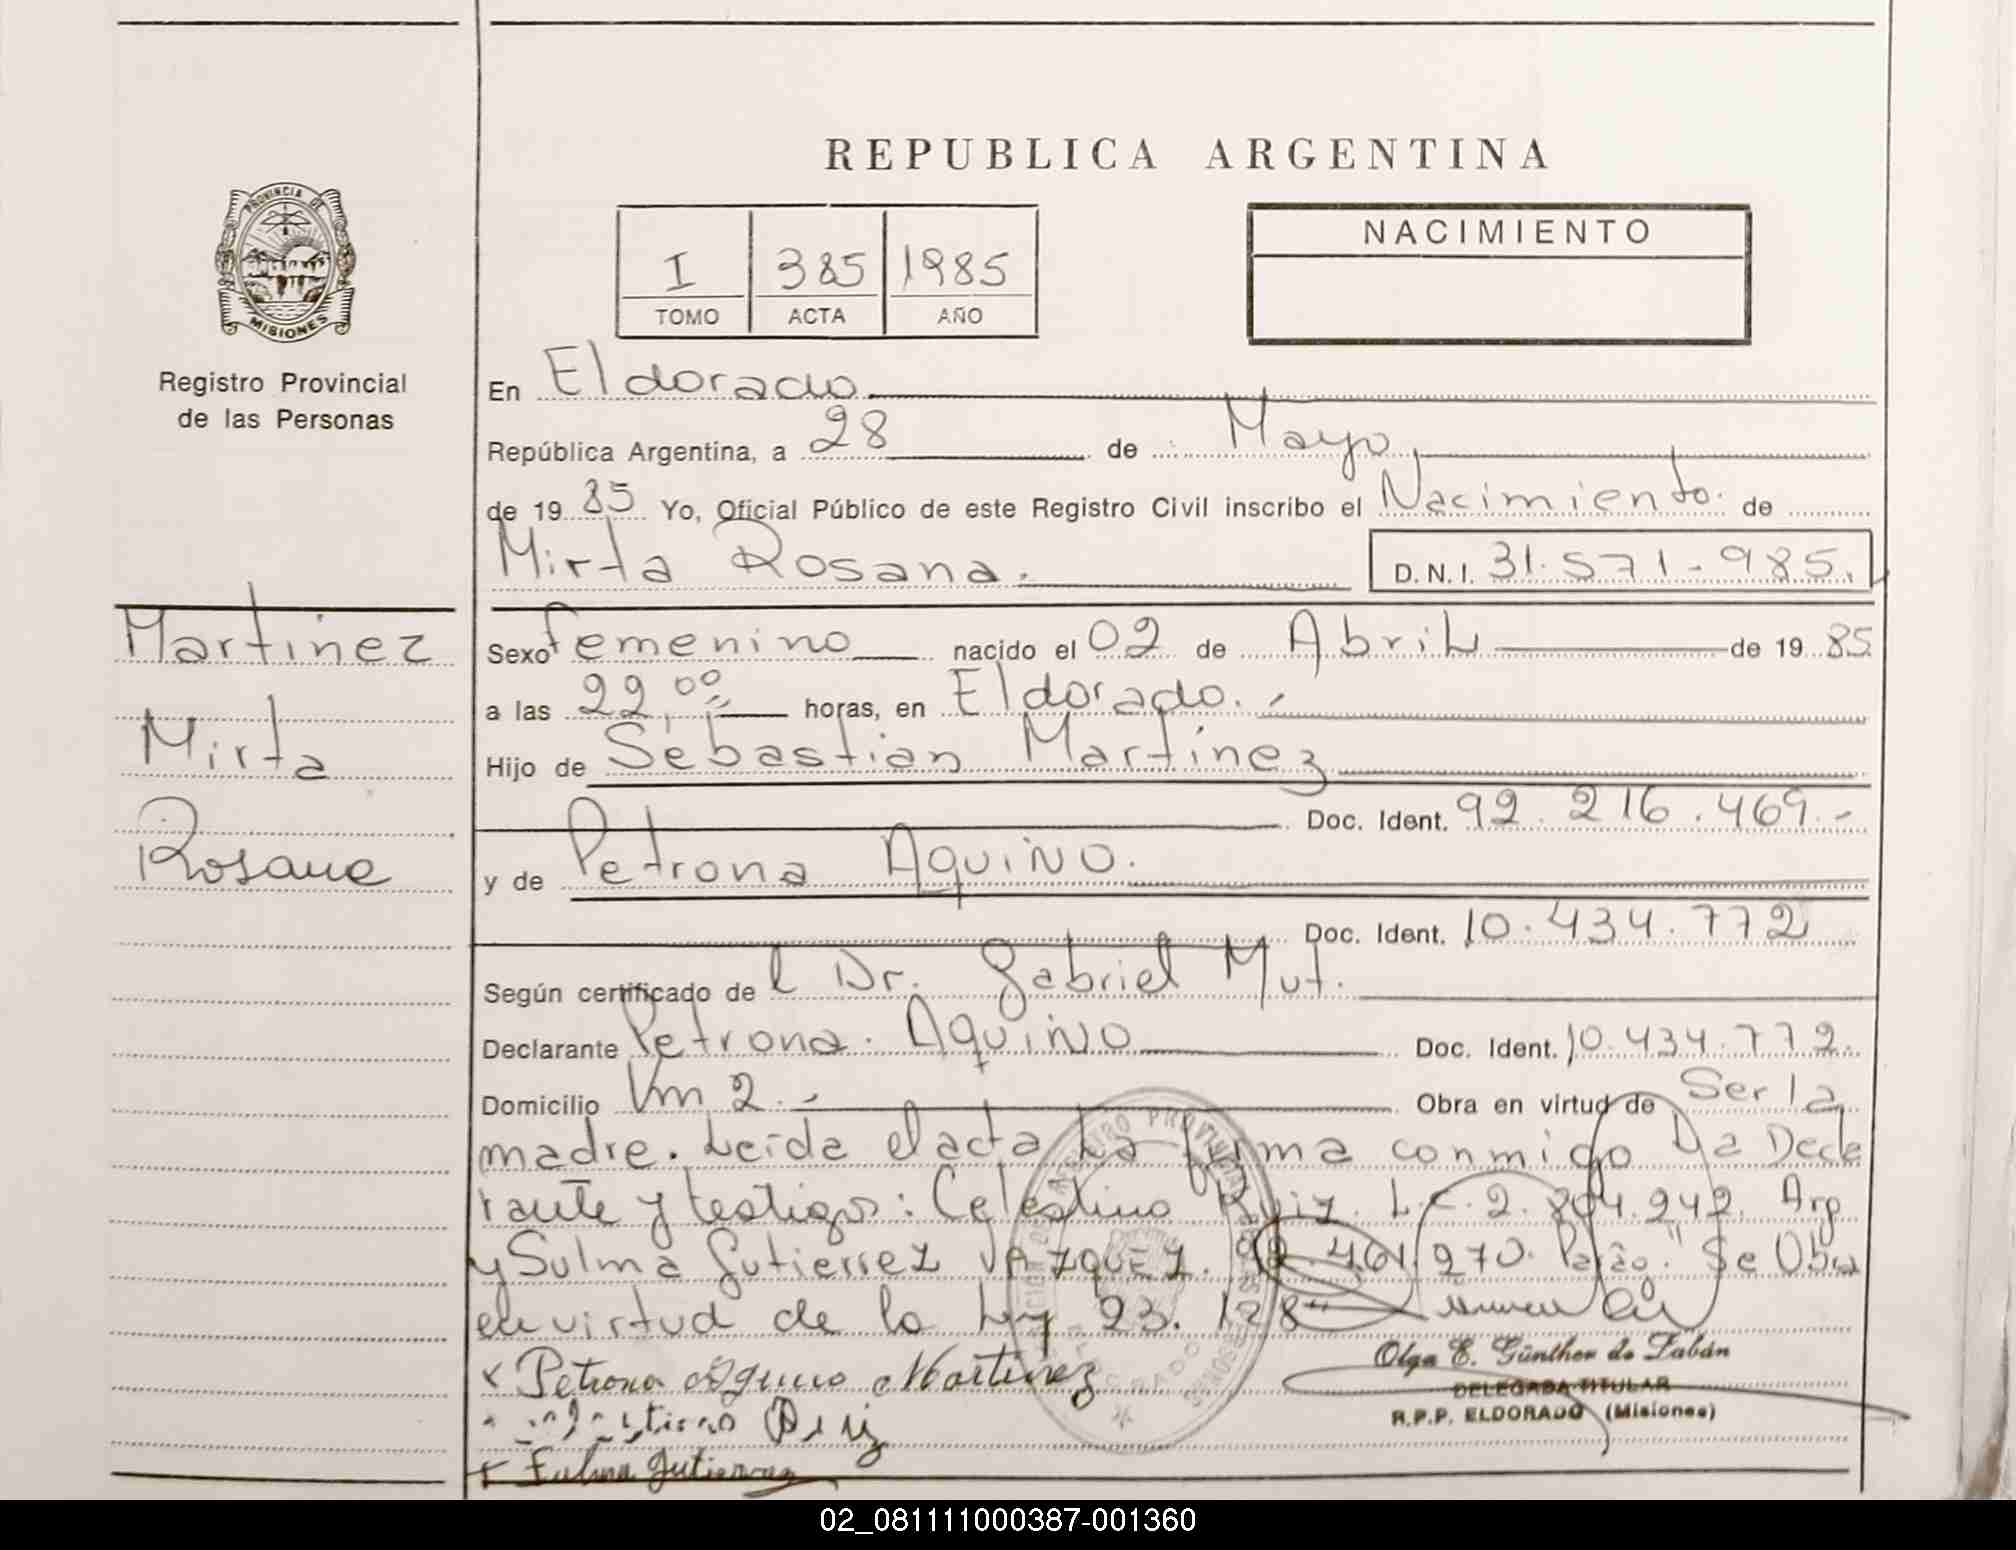 REPUBLICA ARGENTINA
PROVINCIA DE
MISIONES
Registro Provincial
de las Personas
I 385 1985
TOMO ACTA AÑO
NACIMIENTO
En Eldorado
República Argentina, a 28 de Mayo
de 19 85 Yo, Oficial Público de este Registro Civil inscribo el Nacimiento de
Mirta Rosana. D.N.I. 31.571-985.
Martinez
Mirta
Rosana
Sexo femenino nacido el 02 de Abril de 19 85
a las 22,00 horas, en Eldorado.-
Hijo de Sebastian Martinez
Doc. Ident. 92.216.469.-
y de Petrona Aquino.
Doc. Ident. 10.434.772
Según certificado de l Dr. Gabriel Mut.
Declarante Petrona. Aquino Doc. Ident. 10.434.772.
Domicilio Km 2.- Obra en virtud de Ser la
madre. Leida el acta la firma conmigo La Decla
rante y testigos: Celestino Ruiz. L.E. 2.804.242. Arg
y Sulma Gutierrez Vazquez. 461.270. Se Obra
en virtud de la Ley 23.128"
Petrona Aquino Martinez
Ruiz
Sulma Gutierrez
Olga E. Günther de Zabán
DELEGADA TITULAR
R.P.P. ELDORADO (Misiones)
02_081111000387-001360